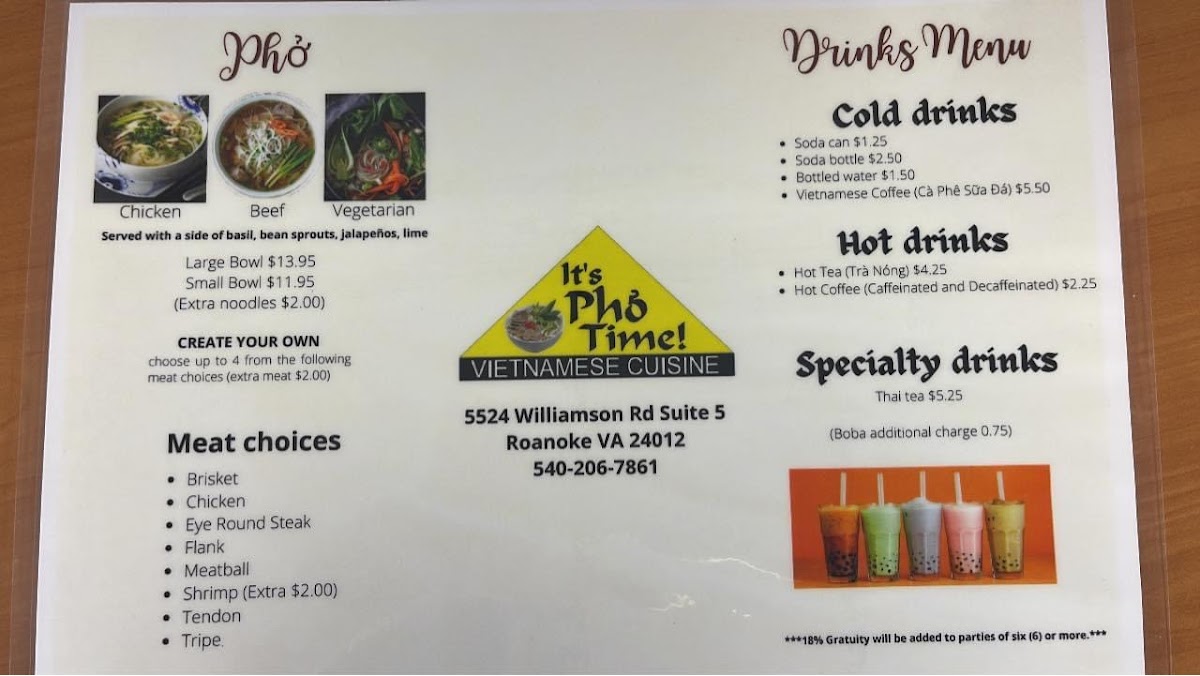 Phở
Chicken
Beef
Vegetarian
Served with a side of basil, bean sprouts, jalapeños, lime
Large Bowl $13.95
Small Bowl $11.95
(Extra noodles $2.00)
CREATE YOUR OWN
choose up to 4 from the following
meat choices (extra meat $2.00)
Meat choices
• Brisket
• Chicken
• Eye Round Steak
• Flank
• Meatball
• Shrimp (Extra $2.00)
• Tendon
• Tripe.
It's
Phở
Time!
VIETNAMESE CUISINE
5524 Williamson Rd Suite 5
Roanoke VA 24012
540-206-7861
Drinks Menu
Cold drinks
• Soda can $1.25
• Soda bottle $2.50
• Bottled water $1.50
• Vietnamese Coffee (Cà Phê Sữa Đá) $5.50
Hot drinks
• Hot Tea (Trà Nóng) $4.25
• Hot Coffee (Caffeinated and Decaffeinated) $2.25
Specialty drinks
Thai tea $5.25
(Boba additional charge 0.75)
***18% Gratuity will be added to parties of six (6) or more.***